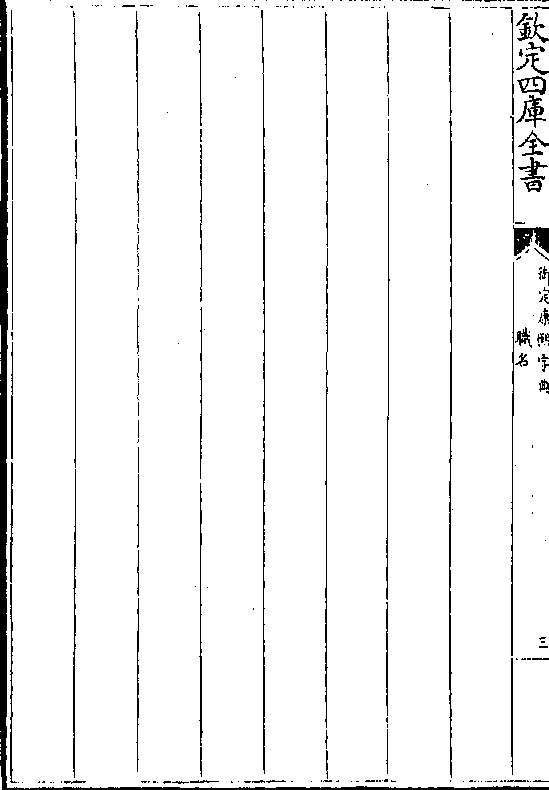 欽定四庫全書
御定康熙字典
職名
三